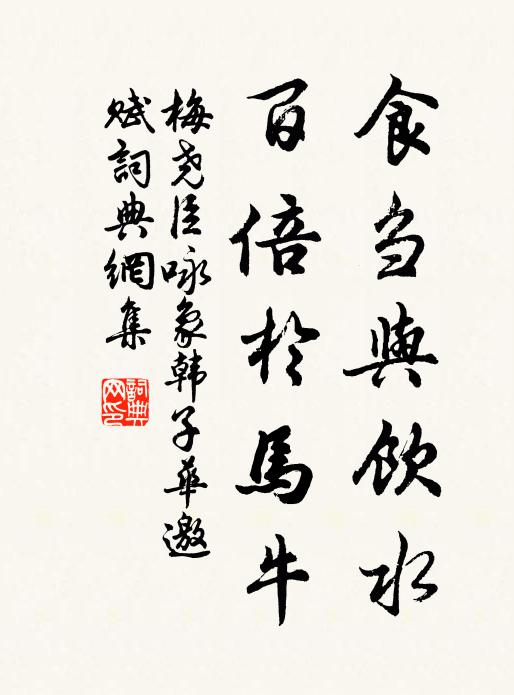 食芻與飲水
百倍於馬牛
梅堯臣咏象韩子華邀
赋詞典網集
詞典网印